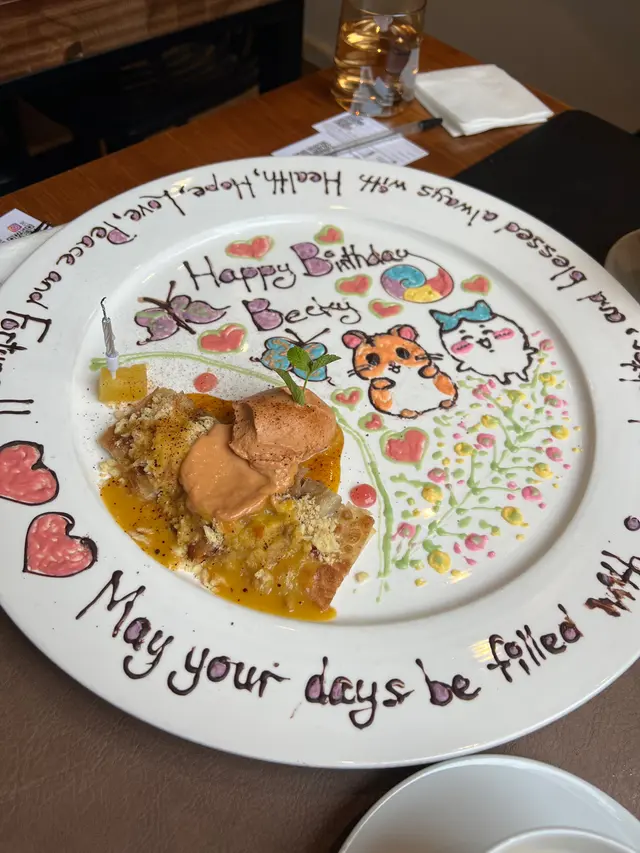 Happy Birthday
Becky
May your days be filled with
, and blessed always with Health, Hope, Love, Peace and Fortune!!